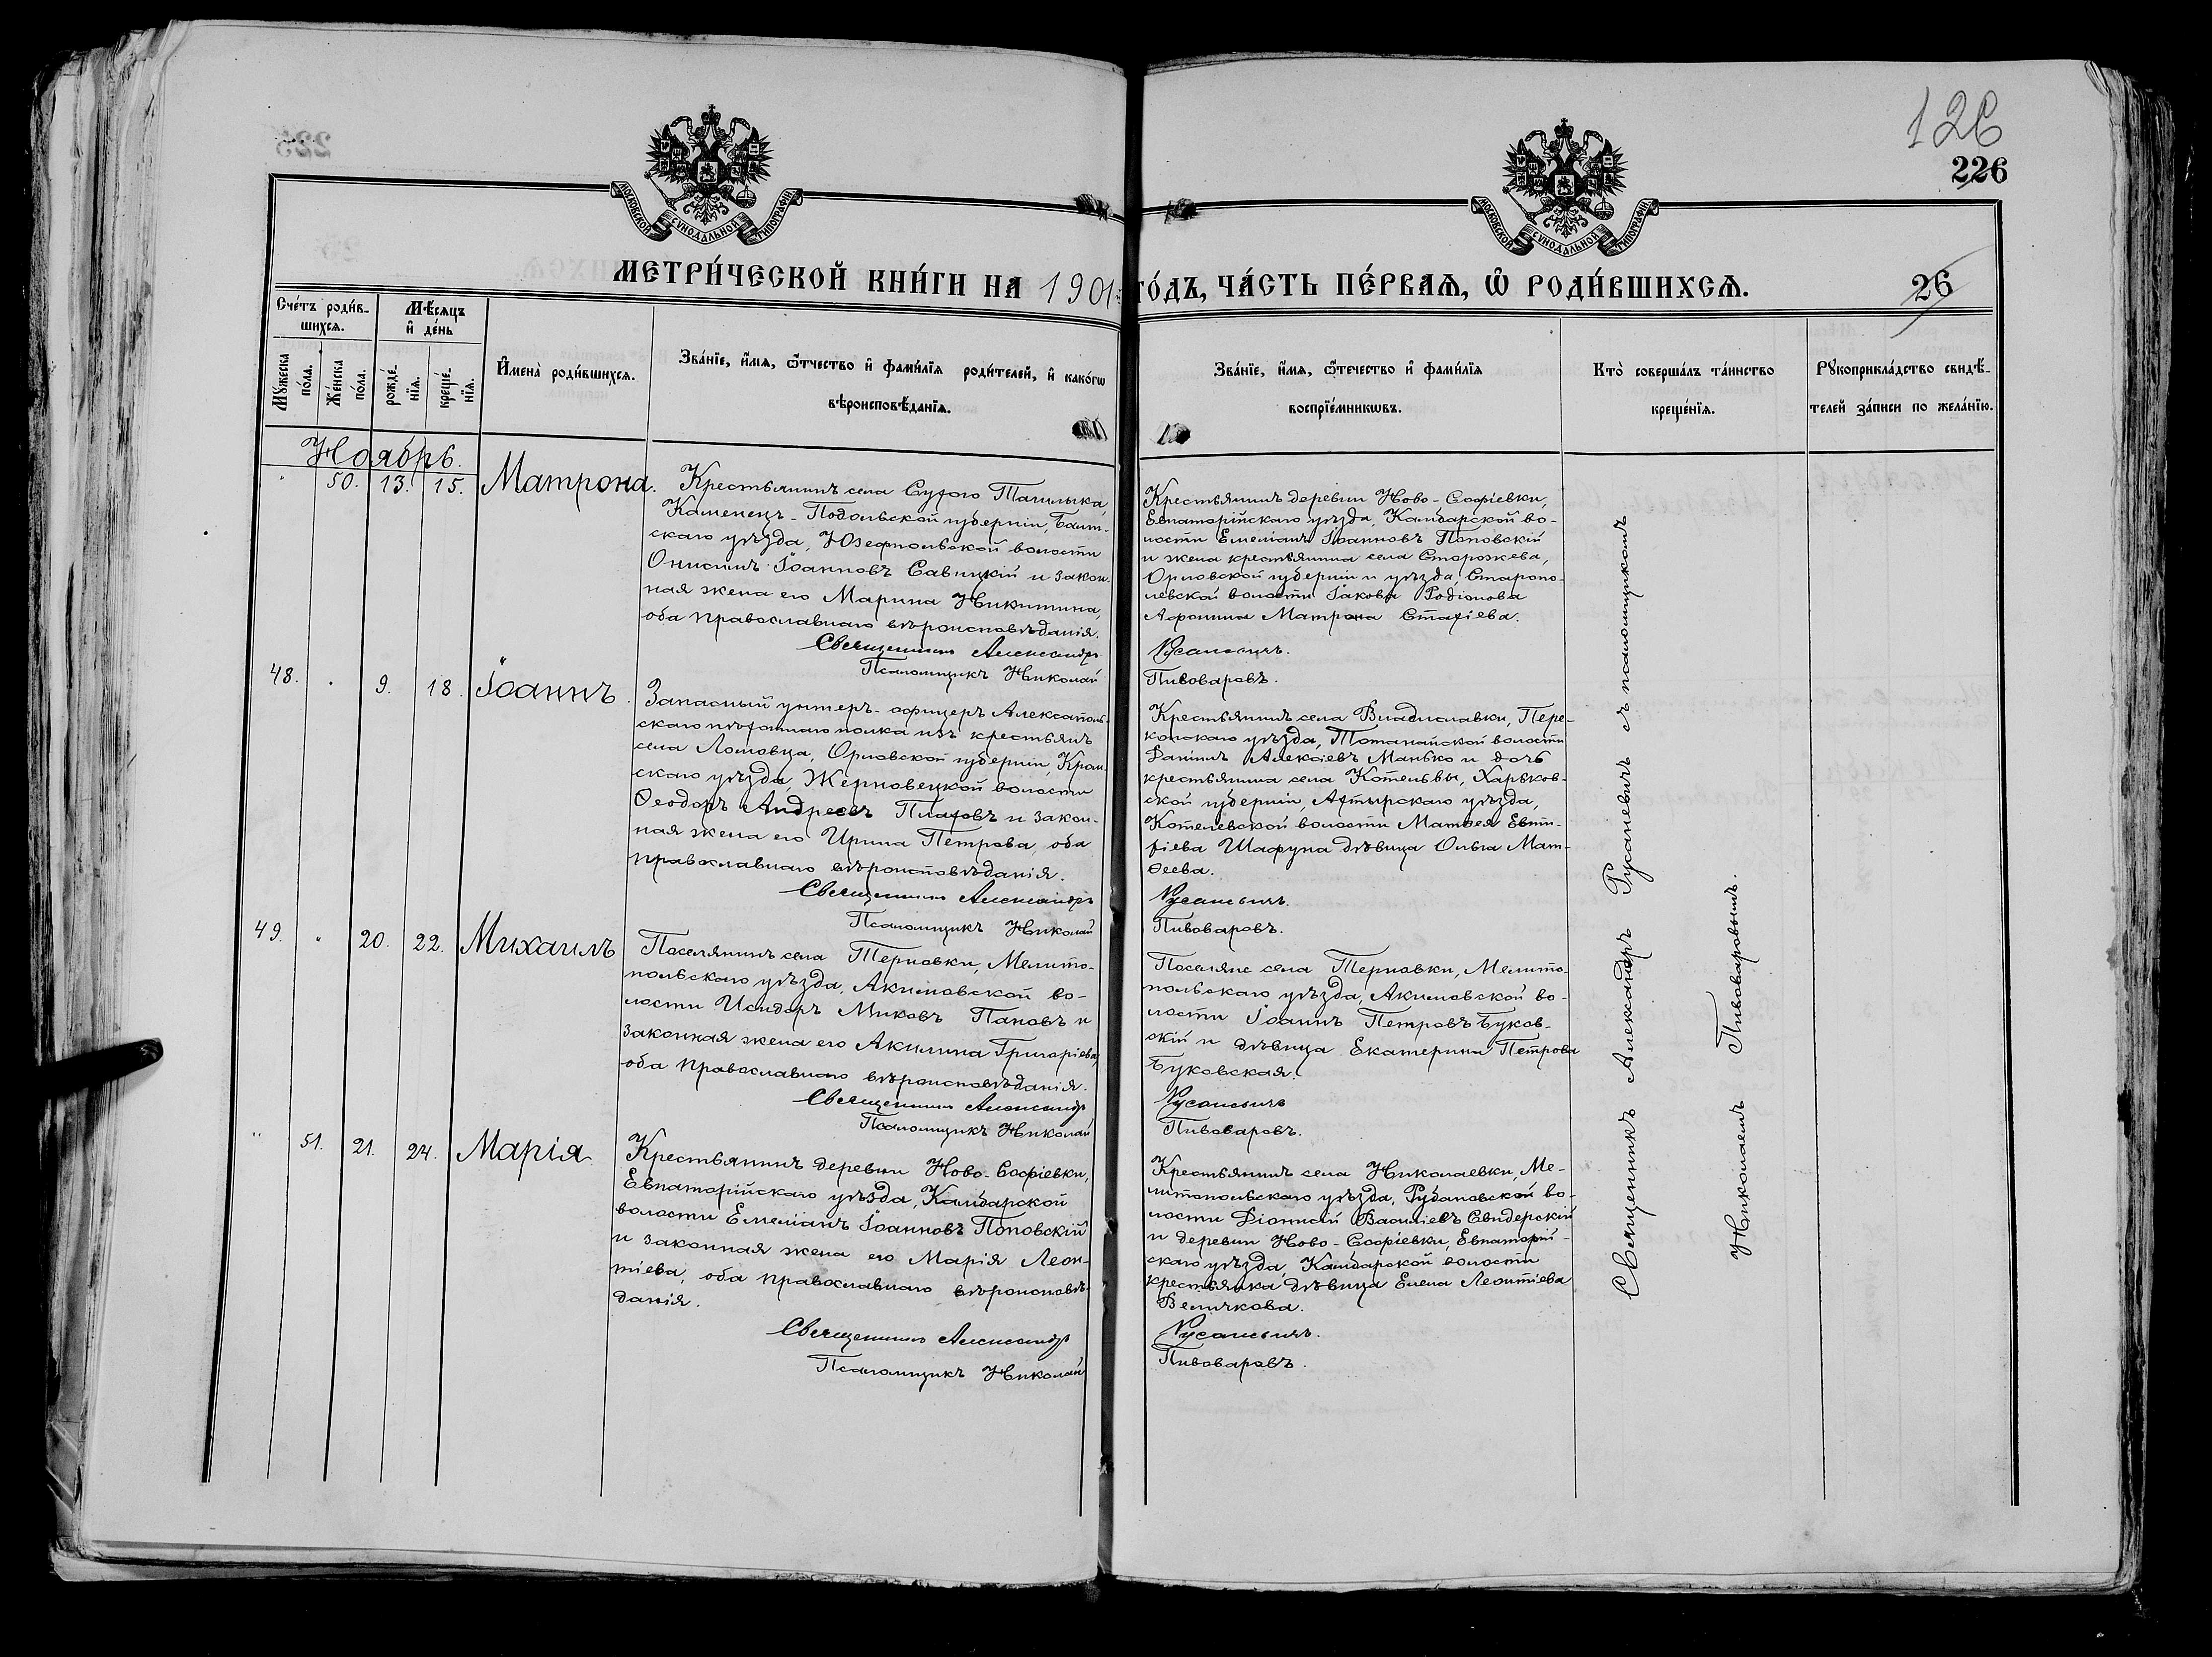 126
226
МОСКОВСКОЙ СУНОДАЛЬНОЙ ТИПОГРАФІИ
МОСКОВСКОЙ СУНОДАЛЬНОЙ ТИПОГРАФІИ
МЕТРИ́ЧЕСКОЙ КНИ́ГИ НА 1901 ГО́ДЪ, ЧА́СТЬ ПЕ́РВАѦ, Ѡ҆ РОДИ́ВШИХСѦ.
26
Сче́тъ роди́в-
шихсѧ.
Мѣ́сѧцъ
и҆ де́нь
Мꙋ́жеска
по́ла.
Же́нска
по́ла.
рожде́-
нїѧ.
креще́-
нїѧ.
И҆мена̀ роди́вшихсѧ.
Зва́нїе, и҆́мѧ, ѻ҆́тчество и҆ фами́лїѧ родителей, и҆ како́гѡ
вѣроисповѣ́данїѧ.
Зва́нїе, и҆́мѧ, ѻ҆́течество и҆ фами́лїѧ
воспрїе́мникѡвъ.
Кто̀ соверша́лъ та́инство
креще́нїѧ.
Рꙋкоприкла́дство свидѣ́-
телей за́писи по жела́нїю.
Ноябрь.
" 50. 13. 15. Матрона.
Крестьянинъ села Сухого Ташлыка,
Каменецъ-Подольской губерніи, Балт-
скаго уѣзда, Юзефпольской волости
Онисимъ Іоанновъ Савицкій и закон-
ная жена его Марина Никитина,
оба православнаго вѣроисповѣданія.
Священникъ Александръ
Псаломщикъ Николай
Крестьянинъ деревни Ново-Софіевки,
Евпаторійскаго уѣзда, Камбарской во-
лости Емеліанъ Іоанновъ Поповскій
и жена крестьянина села Сторожева,
Орловской губерніи и уѣзда, Старопо-
левской волости Іакова Родіонова
Афонина Матрона Стахіева.
Русаневичъ.
Пивоваровъ.
48. " 9. 18. Іоаннъ.
Запасный унтеръ-офицеръ Алексополь-
скаго пѣхотнаго полка изъ крестьянъ
села Ломовца, Орловской губерніи, Кром-
скаго уѣзда, Жерновецкой волости
Ѳеодоръ Андреевъ Плаховъ и закон-
ная жена его Ирина Петрова, оба
православнаго вѣроисповѣданія.
Священникъ Александръ
Псаломщикъ Николай
Крестьянинъ села Владиславки, Пере-
копскаго уѣзда, Тотанайской волости
Даніилъ Алексіевъ Манько и дочь
крестьянина села Котельвы, Харьков-
ской губерніи, Ахтырскаго уѣзда,
Котелевской волости Матѳея Евти-
хіева Шафуна дѣвица Ольга Мат-
ѳеева.
Русаневичъ.
Пивоваровъ.
49. " 20. 22. Михаилъ
Поселянинъ села Терновки, Мелито-
польскаго уѣзда, Акимовской во-
лости Исидоръ Миковъ Пановъ и
законная жена его Акилина Григоріева,
оба православнаго вѣроисповѣданія.
Священникъ Александръ
Псаломщикъ Николай
Поселяне села Терновки, Мелито-
польскаго уѣзда, Акимовской во-
лости Іоаннъ Петровъ Буков-
скій и дѣвица Екатерина Петрова
Буковская.
Русаневичъ
Пивоваровъ.
" 51. 21. 24. Марія
Крестьянинъ деревни Ново-Софіевки,
Евпаторійскаго уѣзда, Камбарской
волости Емеліанъ Іоанновъ Поповскій
и законная жена его Марія Леон-
тіева, оба православнаго вѣроисповѣ-
данія.
Священникъ Александръ
Псаломщикъ Николай
Крестьянинъ села Николаевки, Ме-
литопольскаго уѣзда, Рубановской во-
лости Діонисій Василіевъ Свидерскій
и деревни Ново-Софіевки, Евпаторій-
скаго уѣзда, Камбарской волости
крестьянка дѣвица Елена Леонтіева
Величкова.
Русаневичъ.
Пивоваровъ.
Священникъ Александръ Русаневичъ съ псаломщикомъ
Николаемъ Пивоваровымъ.